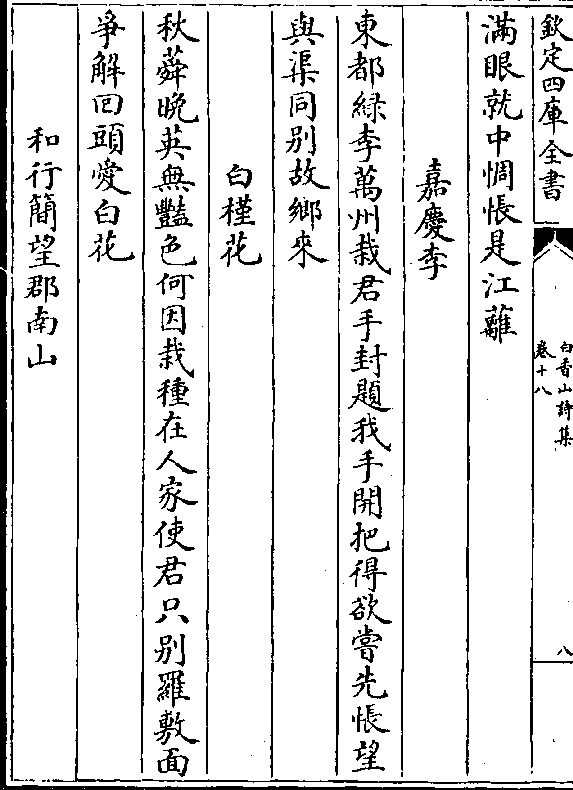 欽定四庫全書
白香山詩集
卷十八
八
滿眼就中惆悵是江蘺
嘉慶李
東都緑李萬州栽君手封題我手開把得欲嘗先悵望
與渠同别故鄉來
白槿花
秋蕣晚英無豔色何因栽種在人家使君只别羅敷面
爭解回頭愛白花
和行簡望郡南山